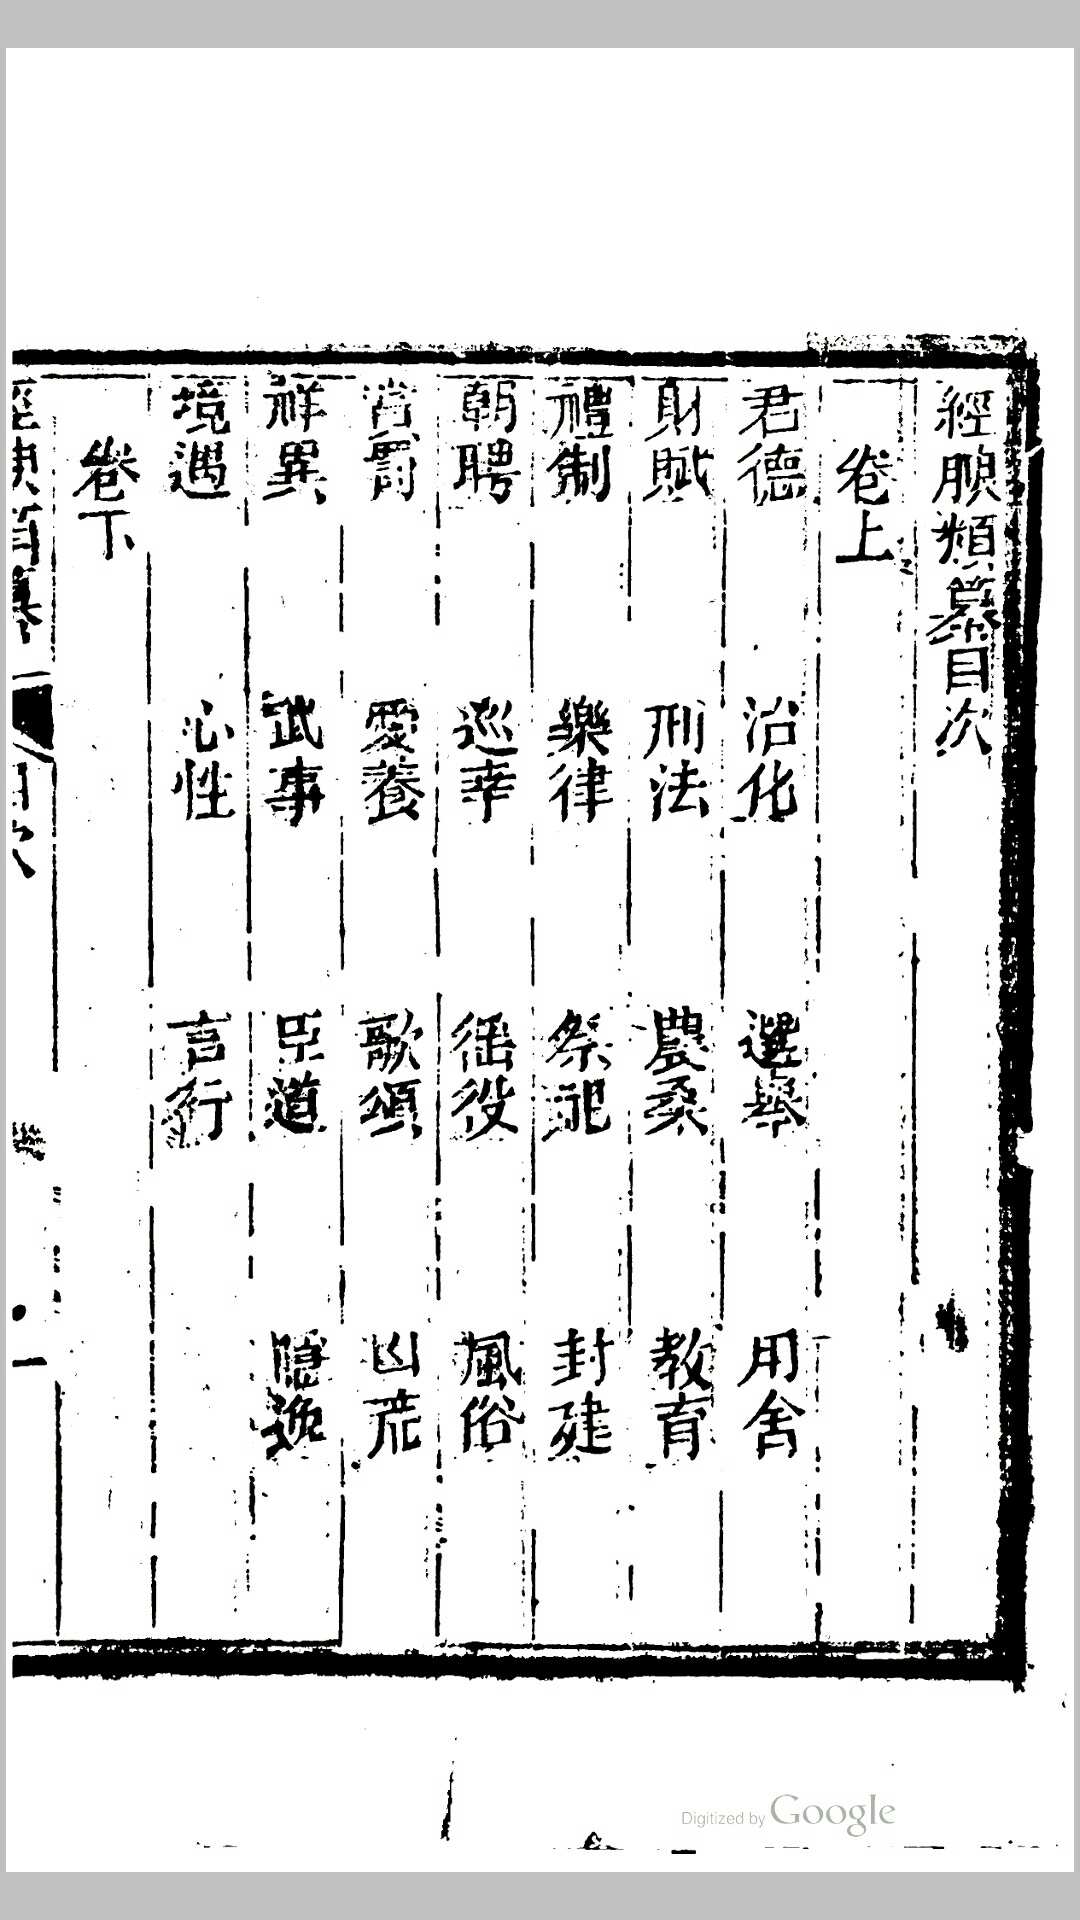 經腴類纂目次
卷上
君德 治化 選舉 用舍
財賦 刑法 農桑 教育
禮制 樂律 祭祀 封建
朝聘 巡幸 徭役 風俗
賞罰 愛養 歌頌 凶荒
祥異 武事 臣道 隱逸
境遇 心性 言行
卷下
經腴類纂 目次 一
Digitized by Google